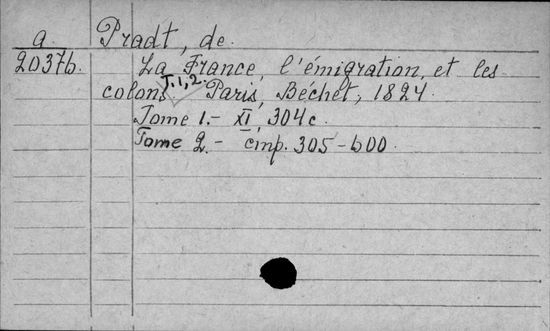 a Pradt, de
20376. La France, l'émigration, et les
colons. T. 1, 2. Paris, Bechet, 1824
Tome 1.- XI, 304 c.
Tome 2.- стр. 305-600.